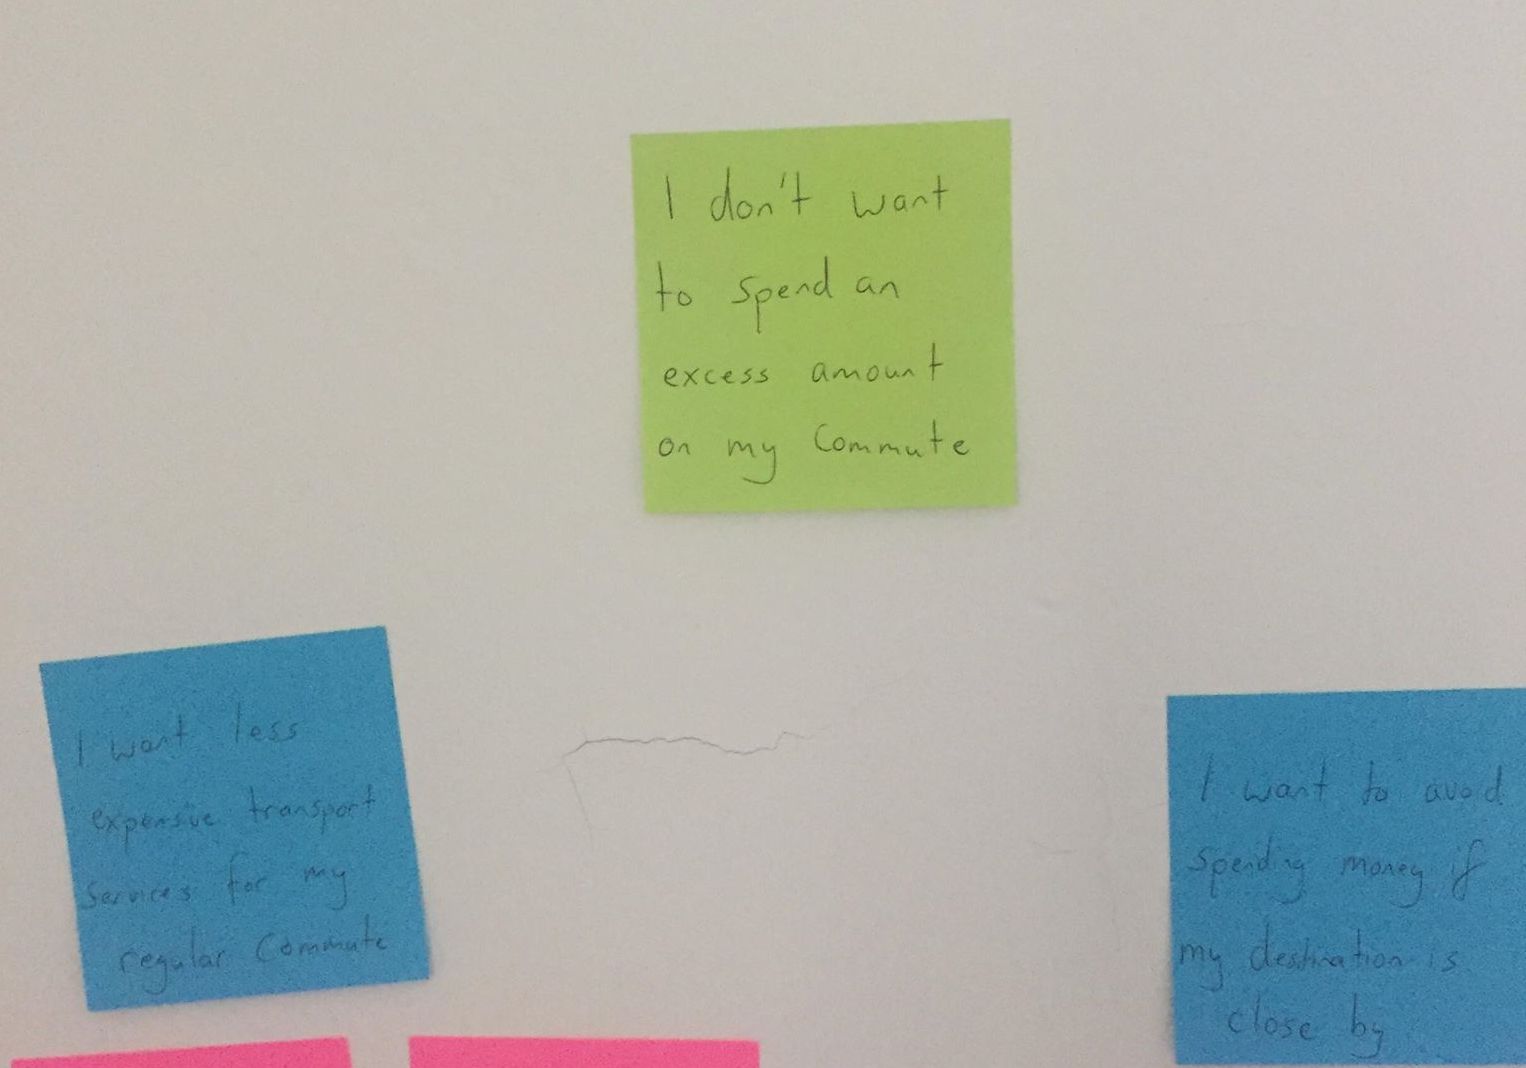 I don't want
to spend an
excess amount
on my commute
I want less
expensive transport
services for my
regular commute
I want to avoid
spending money if
my destination is
close by